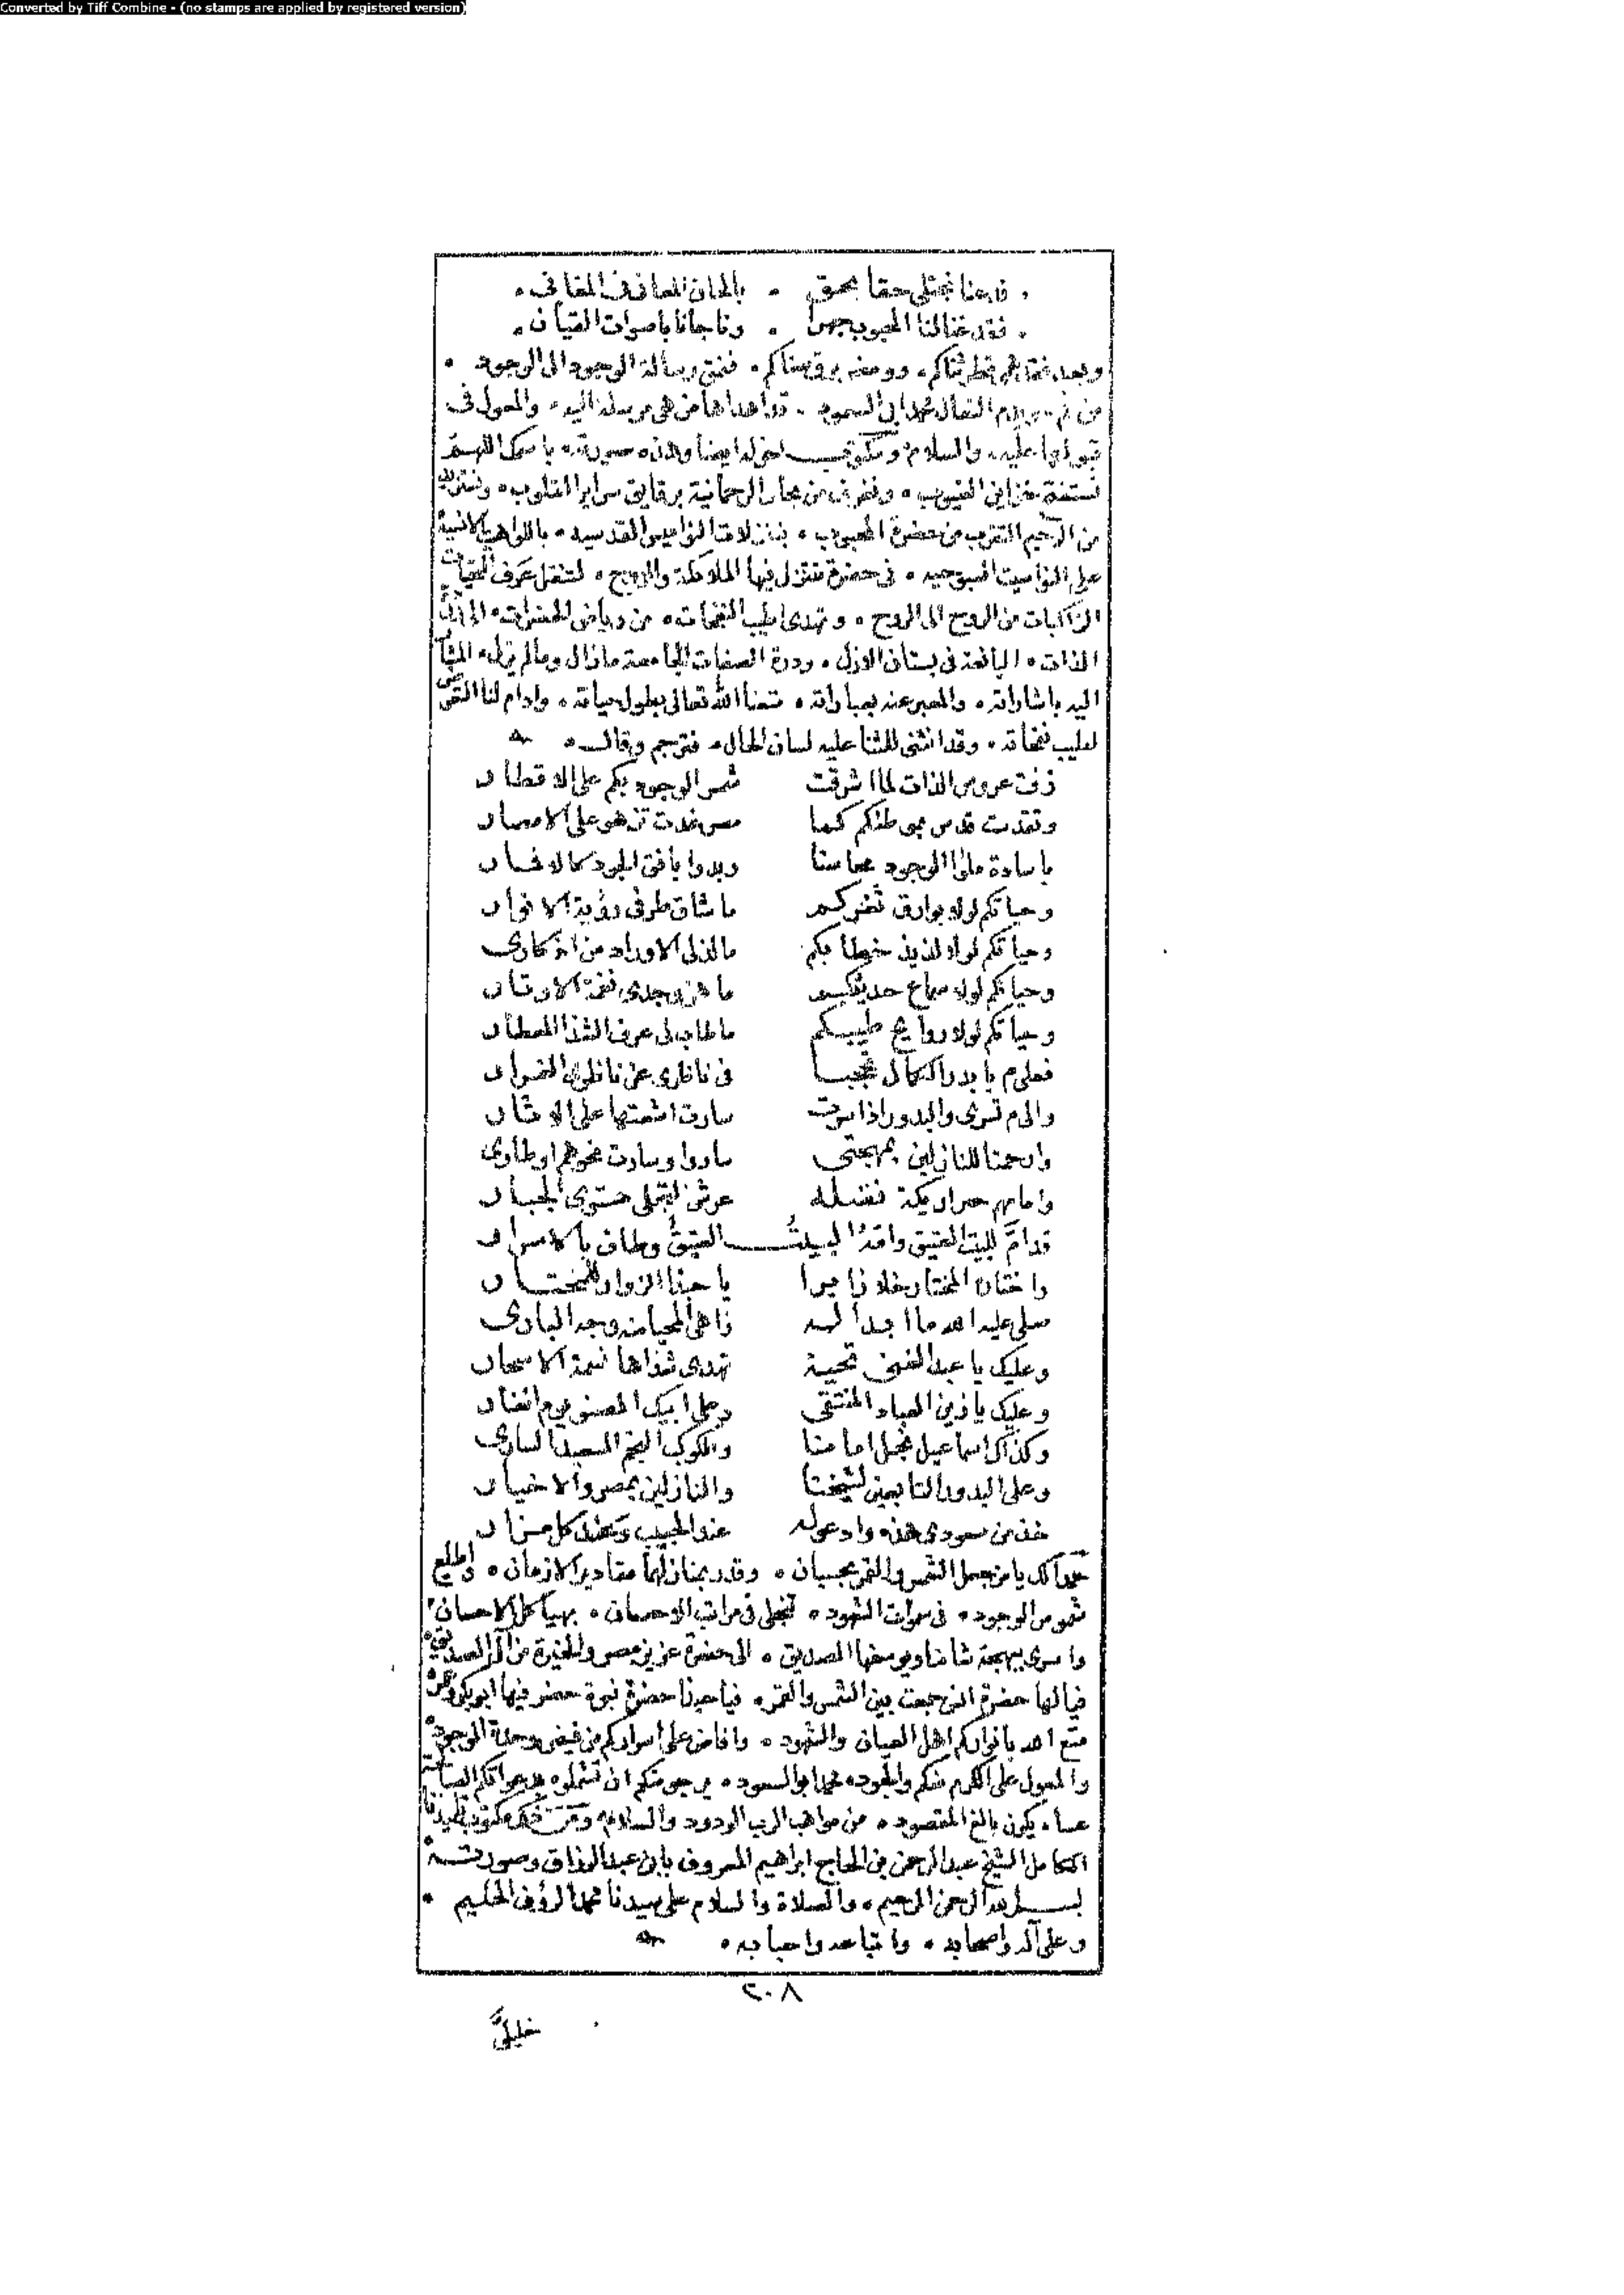 Converted by Tiff Combine - (no stamps are applied by registered version)
فدعنا نجتلي حقا بحق • بالحان المعاني في المغاني •
• فقد غنا لنا المحبوب جهرا • وناجانا باصوات القيان •
وبعد • فختم رسالة الوجود الى الوجود •
من خادم النعال محمد ابي السعود • من هي مرسلة اليه • والمعول في
قبولها عليه • والسلام • ومكتوب اخر له ايضا وهذه صورته • باسمك اللهم
نستفتح خزاين الغيوب • ونغترف من بحار الرحمانية برقايق سراير القلوب •
من الرحيم التقرب من حضرة المحبوب • بتنزلات النواميس القدسيه • بالمواهب الانسية
على النواسيت السبوحيه • في حضرة تتنزل فيها الملائكة والروح • لتنقل عرف التحيات
الزاكيات من الروح الى الروح • وتهدى طيب النفحات • من رياض الحضرات •
الذات • اليانعة في بستان الازل • ودرة الصفات الجامعة ما زال وما لم يزل • المشار
اليه باشاراته • والمعبر عنه بعباراته • متعنا الله تعالى بطول حياته • وادام لنا
لطيب نفحاته • وقد انثنى للثنا عليه لسان الحال • فترجم وقال •
زفت عروس الذات لما اشرقت شمس الوجود بكم على الاقطار
وتقدست قدس بموطنكم كما مصر غدت تزهو على الامصار
يا سادة ملئا الوجود محاسنا وبدوا بافق الجود كالاقمار
وحياتكم لولا بوارق ثغركم ما شاق طرفي رؤية الانوار
وحياتكم لولا لذيذ خطابكم ما لذ لي الاوراد من اذكاري
وحياتكم لولا سماع حديثكم ما هز وجدي نغمة الاوتار
وحياتكم لولا روايح طيبكم ما طاب لي عرف الشذا المعطار
فعلام يا بدر الكمال تحجبا في ناظري عن ناظري
والام تسرى والبدور اذا سرت سارت اشعتها على الاثار
وارحمتا للنازلين بمهجتي ساروا وسارت نحوهم اوطاري
وامامهم فضله عرش التجلي مستوى الجبار
قد امّ للبيت العتيق وامّه البيت العتيق وطاف بالاسرار
واختاره المختار زايرا يا حبذا الزوار للمختار
صلى عليه الله ما ابدا له زاهي المحيا منه وجه الباري
وعليك يا عبد الغني تحية تهدى شذاها نسمة الاسحار
وعليك يا زين العباد المنتقى وعلى ابيك المصطفى
وكذاك اسماعيل نجل امامنا والكوكب النجم السعيد الساري
وعلى البدور التابعين لشيخنا والنازلين بمصر والاخيار
خذ من سعودي هذه وادعو له عند الحبيب وعند كل مزار
حمدا لك يا من جعل الشمس والقمر بحسبان • وقدر بمنازلهما مقادير الازمان • واطلع
شموس الوجود • في سموات الشهود • تتجلى في مراتب الاحسان • بهياكل الانسان •
واسرى ببهجة شامنا ويوسفها الصديق • الى حضرة عزيز مصر والخيرة من آل الصديق •
فيالها حضرة جمعت بين الشمس والقمر • حضرة نبوة حضر فيها ابو بكر وعمر •
متع الله بانواركم اهل العيان والشهود • وافاض على اسراركم من فيض وحدة الوجود •
والمعول على الكرم منكم والجود • محمد ابو السعود • يرجو منكم ان تشملوه بدعواتكم
عساه يكون بالغ المقصود • من مواهب الرب الودود والسلام • مكتوب تلميذنا
الكامل الشيخ عبد الرحمن بن الحاج ابراهيم المعروف بابن عبد الرزاق وصورته •
بسم الله الرحمن الرحيم • والصلاة والسلام على سيدنا محمد الرؤف الحليم •
وعلى آله واصحابه • واتباعه واحبابه •
٢٠٨
خليلي